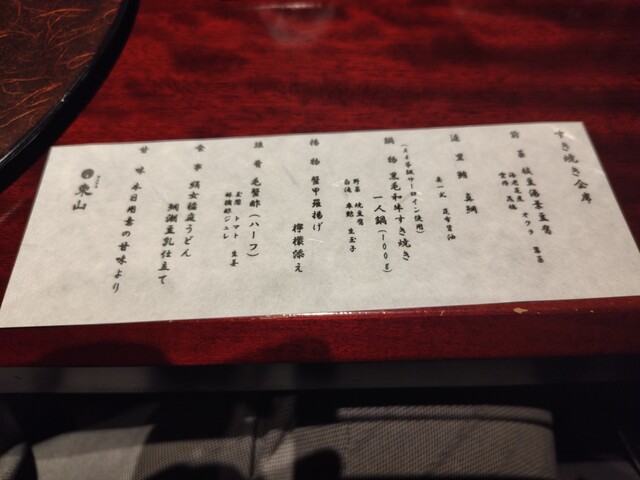 すき焼き会席
前菜 枝豆湯葉豆腐
海老豆皮 オクラ
造里 鮪 真鯛
昆布醤油
鍋物 黒毛和牛すき焼き
(A4等級サーロイン使用)
一人鍋(100g)
野菜 焼豆腐
白滝 車麩 生玉子
揚物 蟹甲羅揚げ
檸檬添え
強肴 毛蟹酢(ハーフ)
トマト 生姜
林檎酢ジュレ
食事 絹女稲庭うどん
鯛潮豆乳仕立て
甘味 本日用意の甘味より
東山